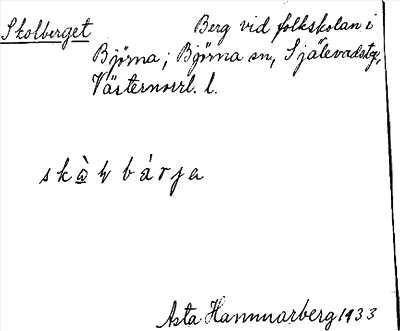 Skolberget Berg vid folkskolan i
Björna; Björna sn, Själevadstg,
Västernorrl. l.
skàɷ bárja
Asta Hammarberg 1933